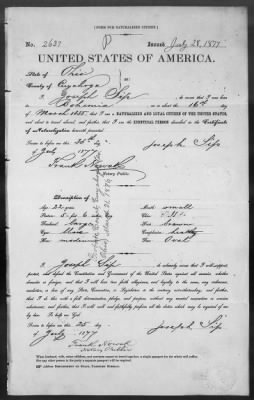 [FORM FOR NATURALIZED CITIZEN.]
No. 2637 P Issued July 28, 1877
UNITED STATES OF AMERICA.
State of Ohio
County of Cuyahoga
I, Joseph Sip, do swear that I was born
in Bohemia on or about the 16th day
of March 1855; that I am a NATURALIZED AND LOYAL CITIZEN OF THE UNITED STATES,
and about to travel abroad; and further, that I am the IDENTICAL PERSON described in the Certificate
of Naturalization herewith presented.
Sworn to before me this 25th day
of July, 1877 Joseph Sip
Frank Novak
Notary Public.
Description of
Age: 22 years Mouth: small
Stature: 5 feet
Nose: large Hair: brown
Eyes: Blue Complexion: healthy
Face: Oval
I, Joseph Sip, do solemnly swear that I will support,
protect, and defend the Constitution and Government of the United States against all enemies, whether
domestic or foreign; and that I will bear true faith, allegiance, and loyalty to the same, any ordinance,
resolution, or law of any State, Convention, or Legislature to the contrary notwithstanding; and further,
that I do this with a full determination, pledge, and purpose, without any mental reservation or evasion
whatsoever; and further, that I will well and faithfully perform all the duties which may be required of me
by law: So help me God.
Sworn to before me this 25 day
of July, 1877 Joseph Sip
Frank Novak
Notary Public